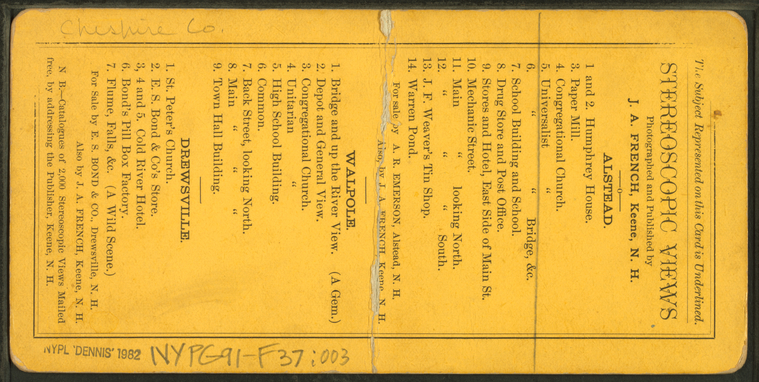 Cheshire Co.
The Subject Represented on this Card is Underlined.
STEREOSCOPIC VIEWS
Photographed and Published by
J. A. FRENCH, Keene, N. H.
ALSTEAD.
1 and 2. Humphrey House.
3. Paper Mill.
4. Congregational Church.
5. Universalist "
6. " " Bridge, &c.
7. School Building and School.
8. Drug Store and Post Office.
9. Stores and Hotel, East Side of Main St.
10. Mechanic Street.
11. Main " looking North.
12. " " " South.
13. J. F. Weaver's Tin Shop.
14. Warren Pond.
For sale by A. R. EMERSON, Alstead, N. H.
Also, by J. A. FRENCH, Keene, N. H.
WALPOLE.
1. Bridge and up the River View. (A Gem.)
2. Depot and General View.
3. Congregational Church.
4. Unitarian "
5. High School Building.
6. Common.
7. Back Street, looking North.
8. Main " " "
9. Town Hall Building.
DREWSVILLE.
1. St. Peter's Church.
2. E. S. Bond & Co's Store.
3, 4 and 5. Cold River Hotel.
6. Bond's Pill Box Factory.
7. Flume, Falls, &c. (A Wild Scene.)
For Sale by E. S. BOND & CO., Drewsville, N. H.
Also by J. A. FRENCH, Keene, N. H.
N B.—Catalogues of 2,000 Stereoscopic Views Mailed
free, by addressing the Publisher, Keene, N. H.
NYPL "DENNIS" 1982
NYPG91-F37:003